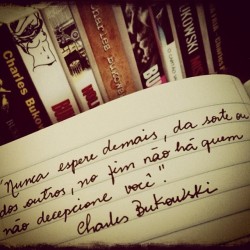 Charles Bukowski
Charles Buko
BUKOWSKI
"Nunca espere demais, da sorte ou
dos outros, no fim não há quem
não decepcione você".
Charles Bukowski